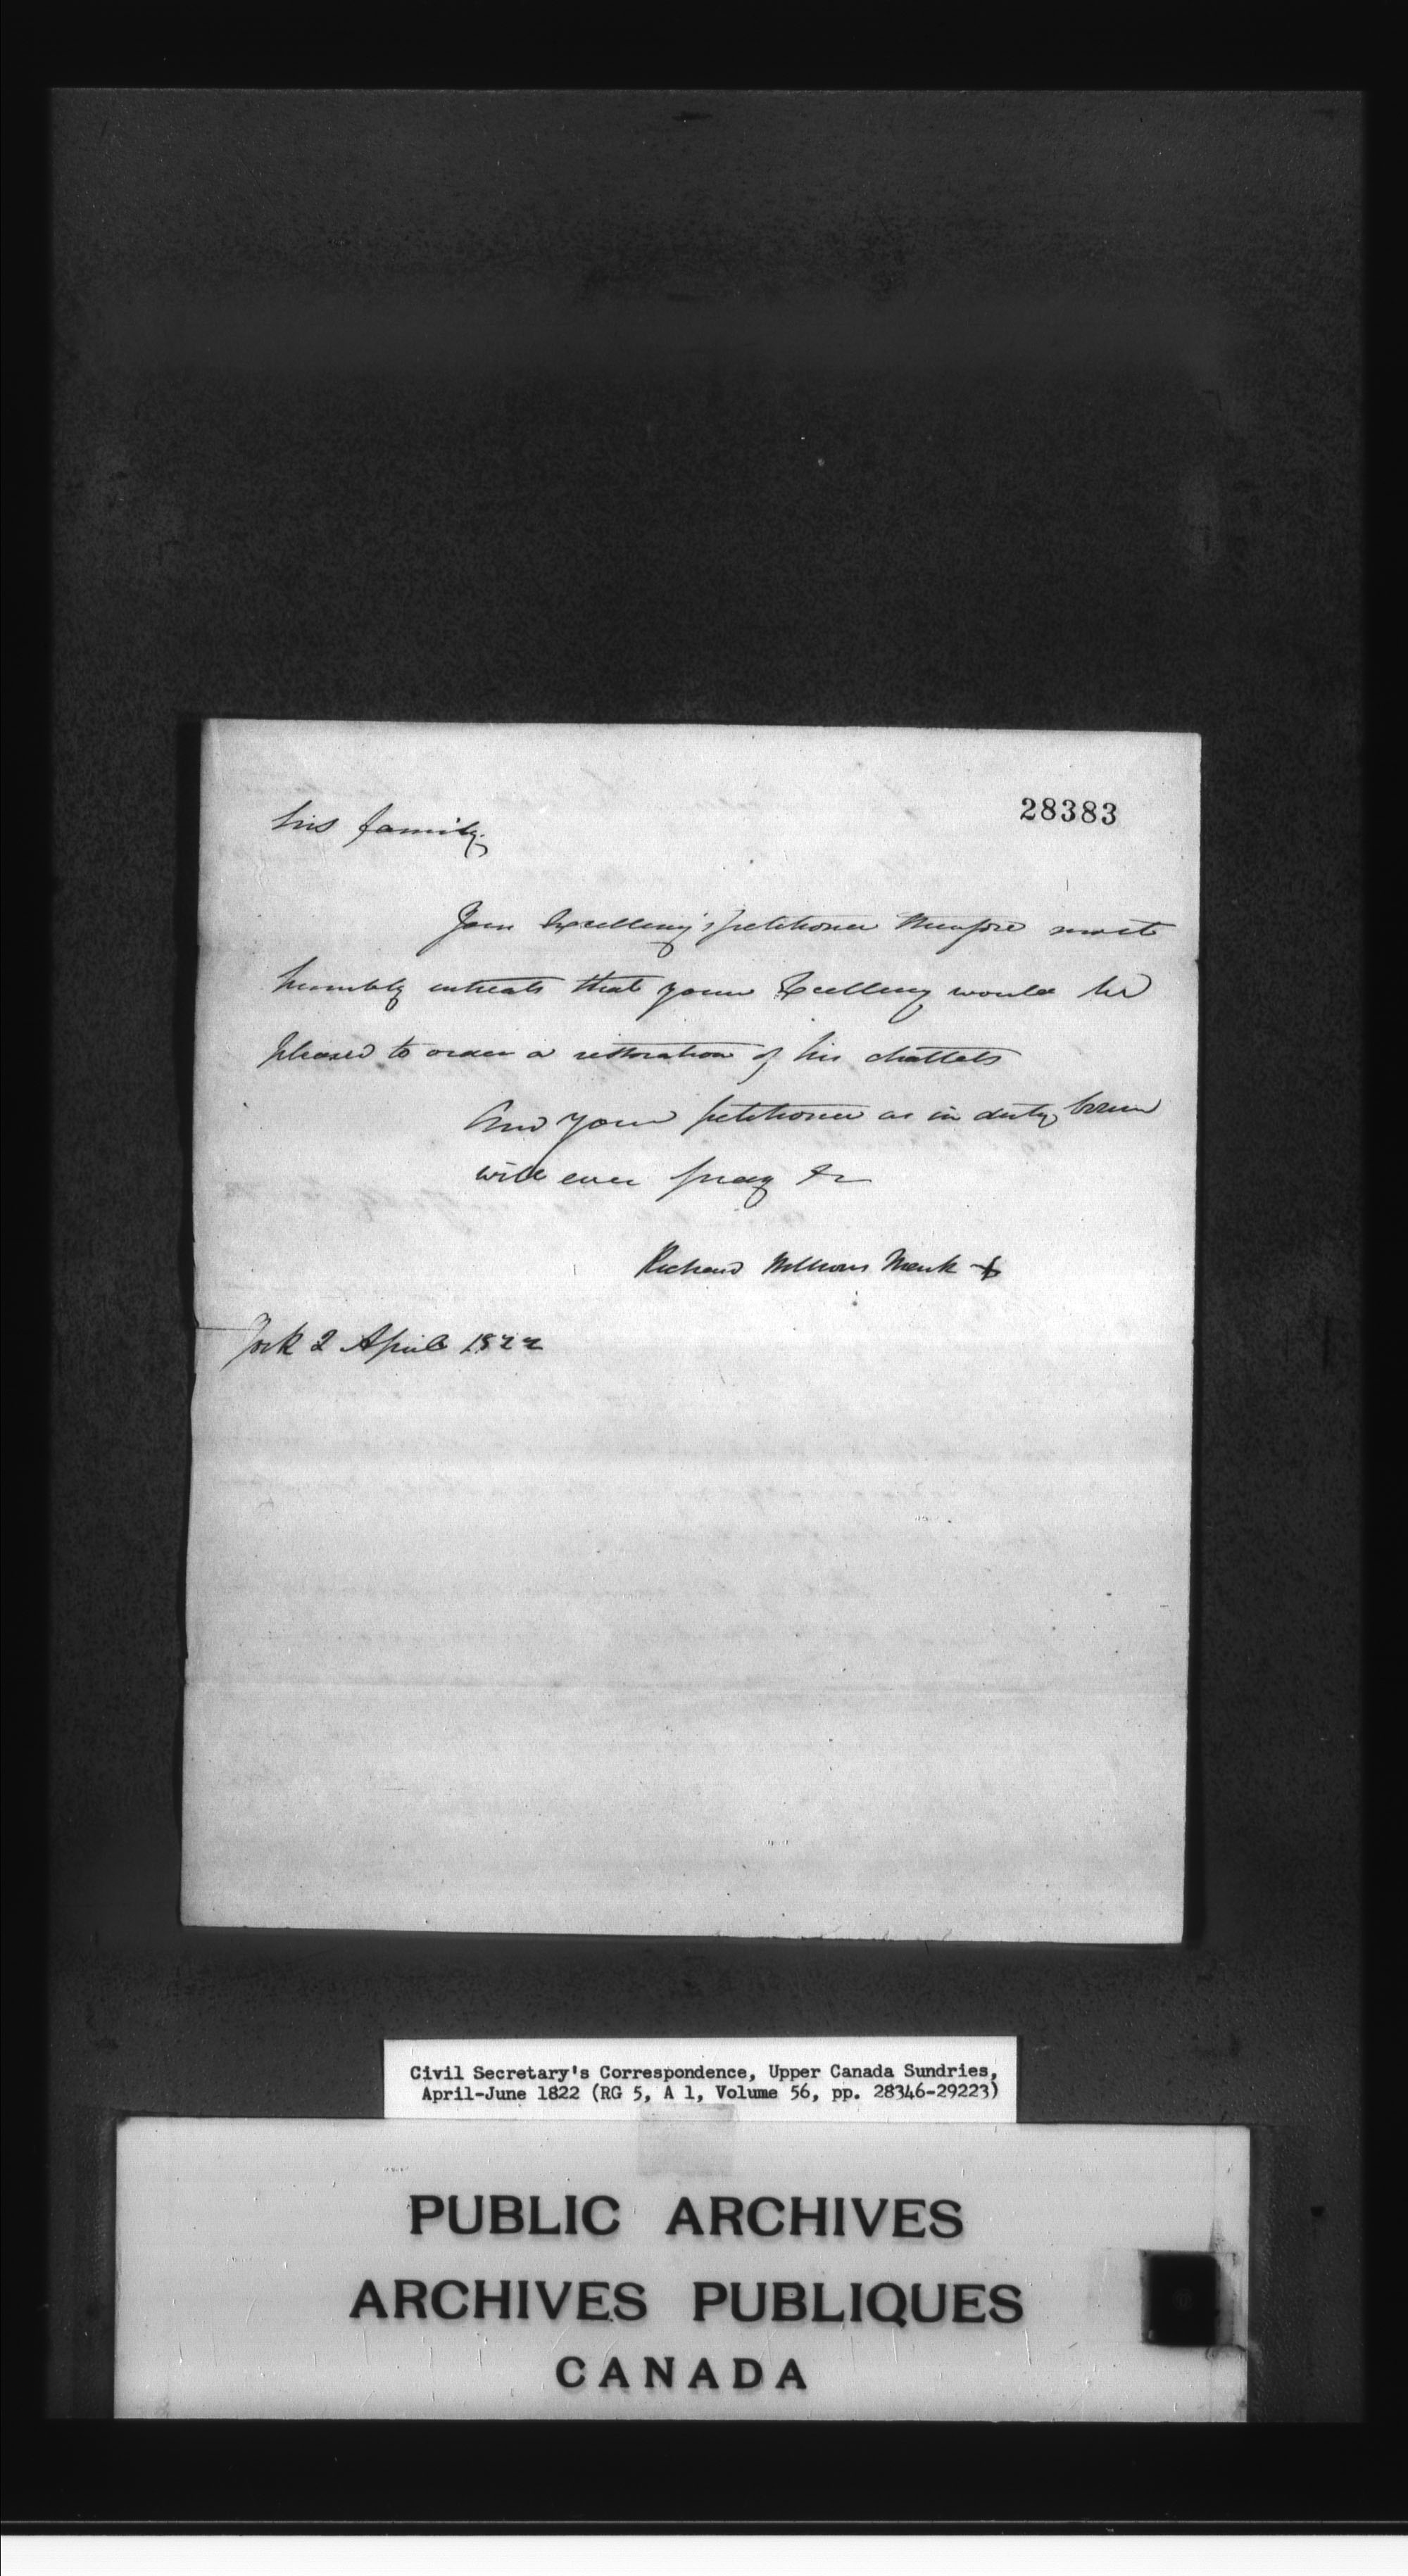 28383
his family.
Your Excellency's petitioner therefore most
humbly intreats that your Excellency would be
pleased to order a restoration of his chattels
And your petitioner as in duty bound
will ever pray &c
Richard Williams Mark +
York 2 April 1822
Civil Secretary's Correspondence, Upper Canada Sundries,
April-June 1822 (RG 5, A 1, Volume 56, pp. 28346-29223)
PUBLIC ARCHIVES
ARCHIVES PUBLIQUES
CANADA